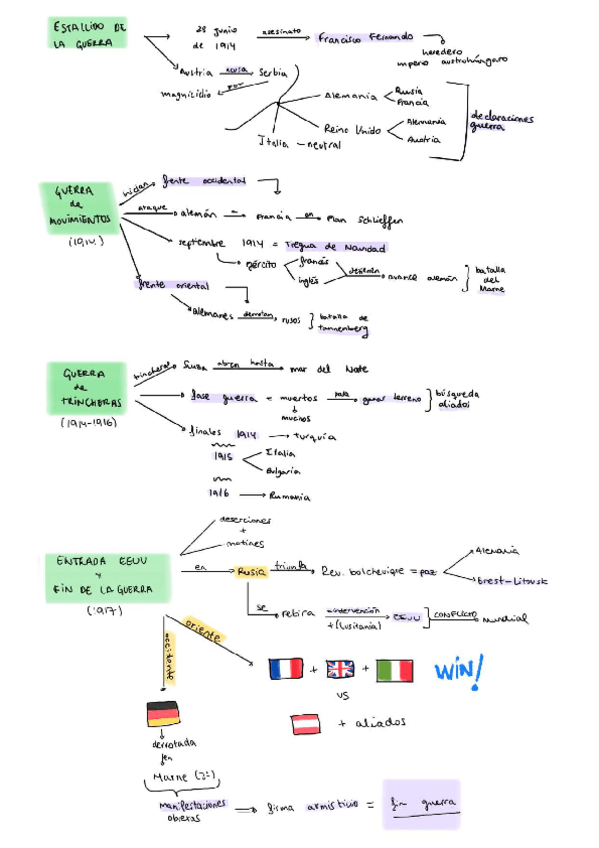 ESTALLIDO DE
LA GUERRA
28 junio
de 1914
asesinato
Francisco Fernando
heredero
imperio austrohúngaro
Austria acusa Serbia
por
magnicidio
Alemania
Rusia
Francia
Reino Unido
Alemania
Austria
Italia - neutral
declaraciones
guerra
GUERRA
de
MOVIMIENTOS
(1914)
inician
frente occidental
ataque alemán = Francia en Plan Schlieffen
septiembre 1914 = Tregua de Navidad
ejército
francés
inglés
detienen
avance alemán
batalla
del
Marne
frente oriental
alemanes derrotan rusos
batalla de
tannenberg
GUERRA
de
TRINCHERAS
(1914-1916)
trincheras
Suiza abren hasta mar del Norte
fase guerra = muertos para ganar terreno
muchos
búsqueda
aliados
finales 1914 turquía
1915
Italia
Bulgaria
1916 Rumania
deserciones
+
motines
ENTRADA EEUU
y
FIN DE LA GUERRA
(1917)
en Rusia triunfa Rev. bolchevique = paz
Alemania
Brest-Litovsk
se retira
intervención
+(Lusitania)
EEUU
CONFLICTO
mundial
oriente
occidente
+ +
WIN!
vs
+ aliados
derrotada
en
Marne (2º)
manifestaciones
obreras
firma armisticio = fin guerra